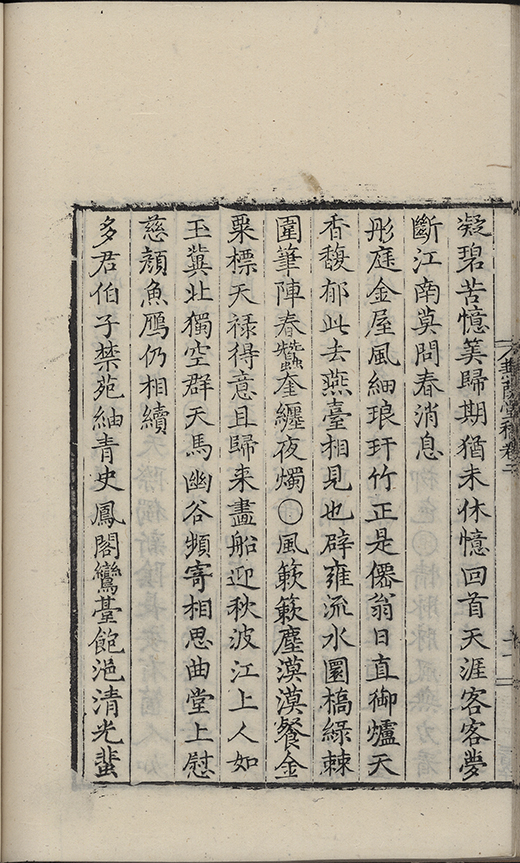 凝碧苦憶筭歸期猶未休憶回首天涯客客夢
斷江南莫問春消息
彤庭金屋風細琅玕竹正是僊翁日直御爐天
香馥郁此去燕臺相見也辟雍流水圜橋綠棘
圍筆陣春蠶奎纏夜燭〇風簌簌塵漠漠餐金
粟標天祿得意且歸来畫船迎秋波江上人如
玉冀北獨空群天馬幽谷頻寄相思曲堂上慰
慈顔魚鴈仍相續
多君伯子禁苑紬青史鳳閣鸞臺飽浥清光蜚